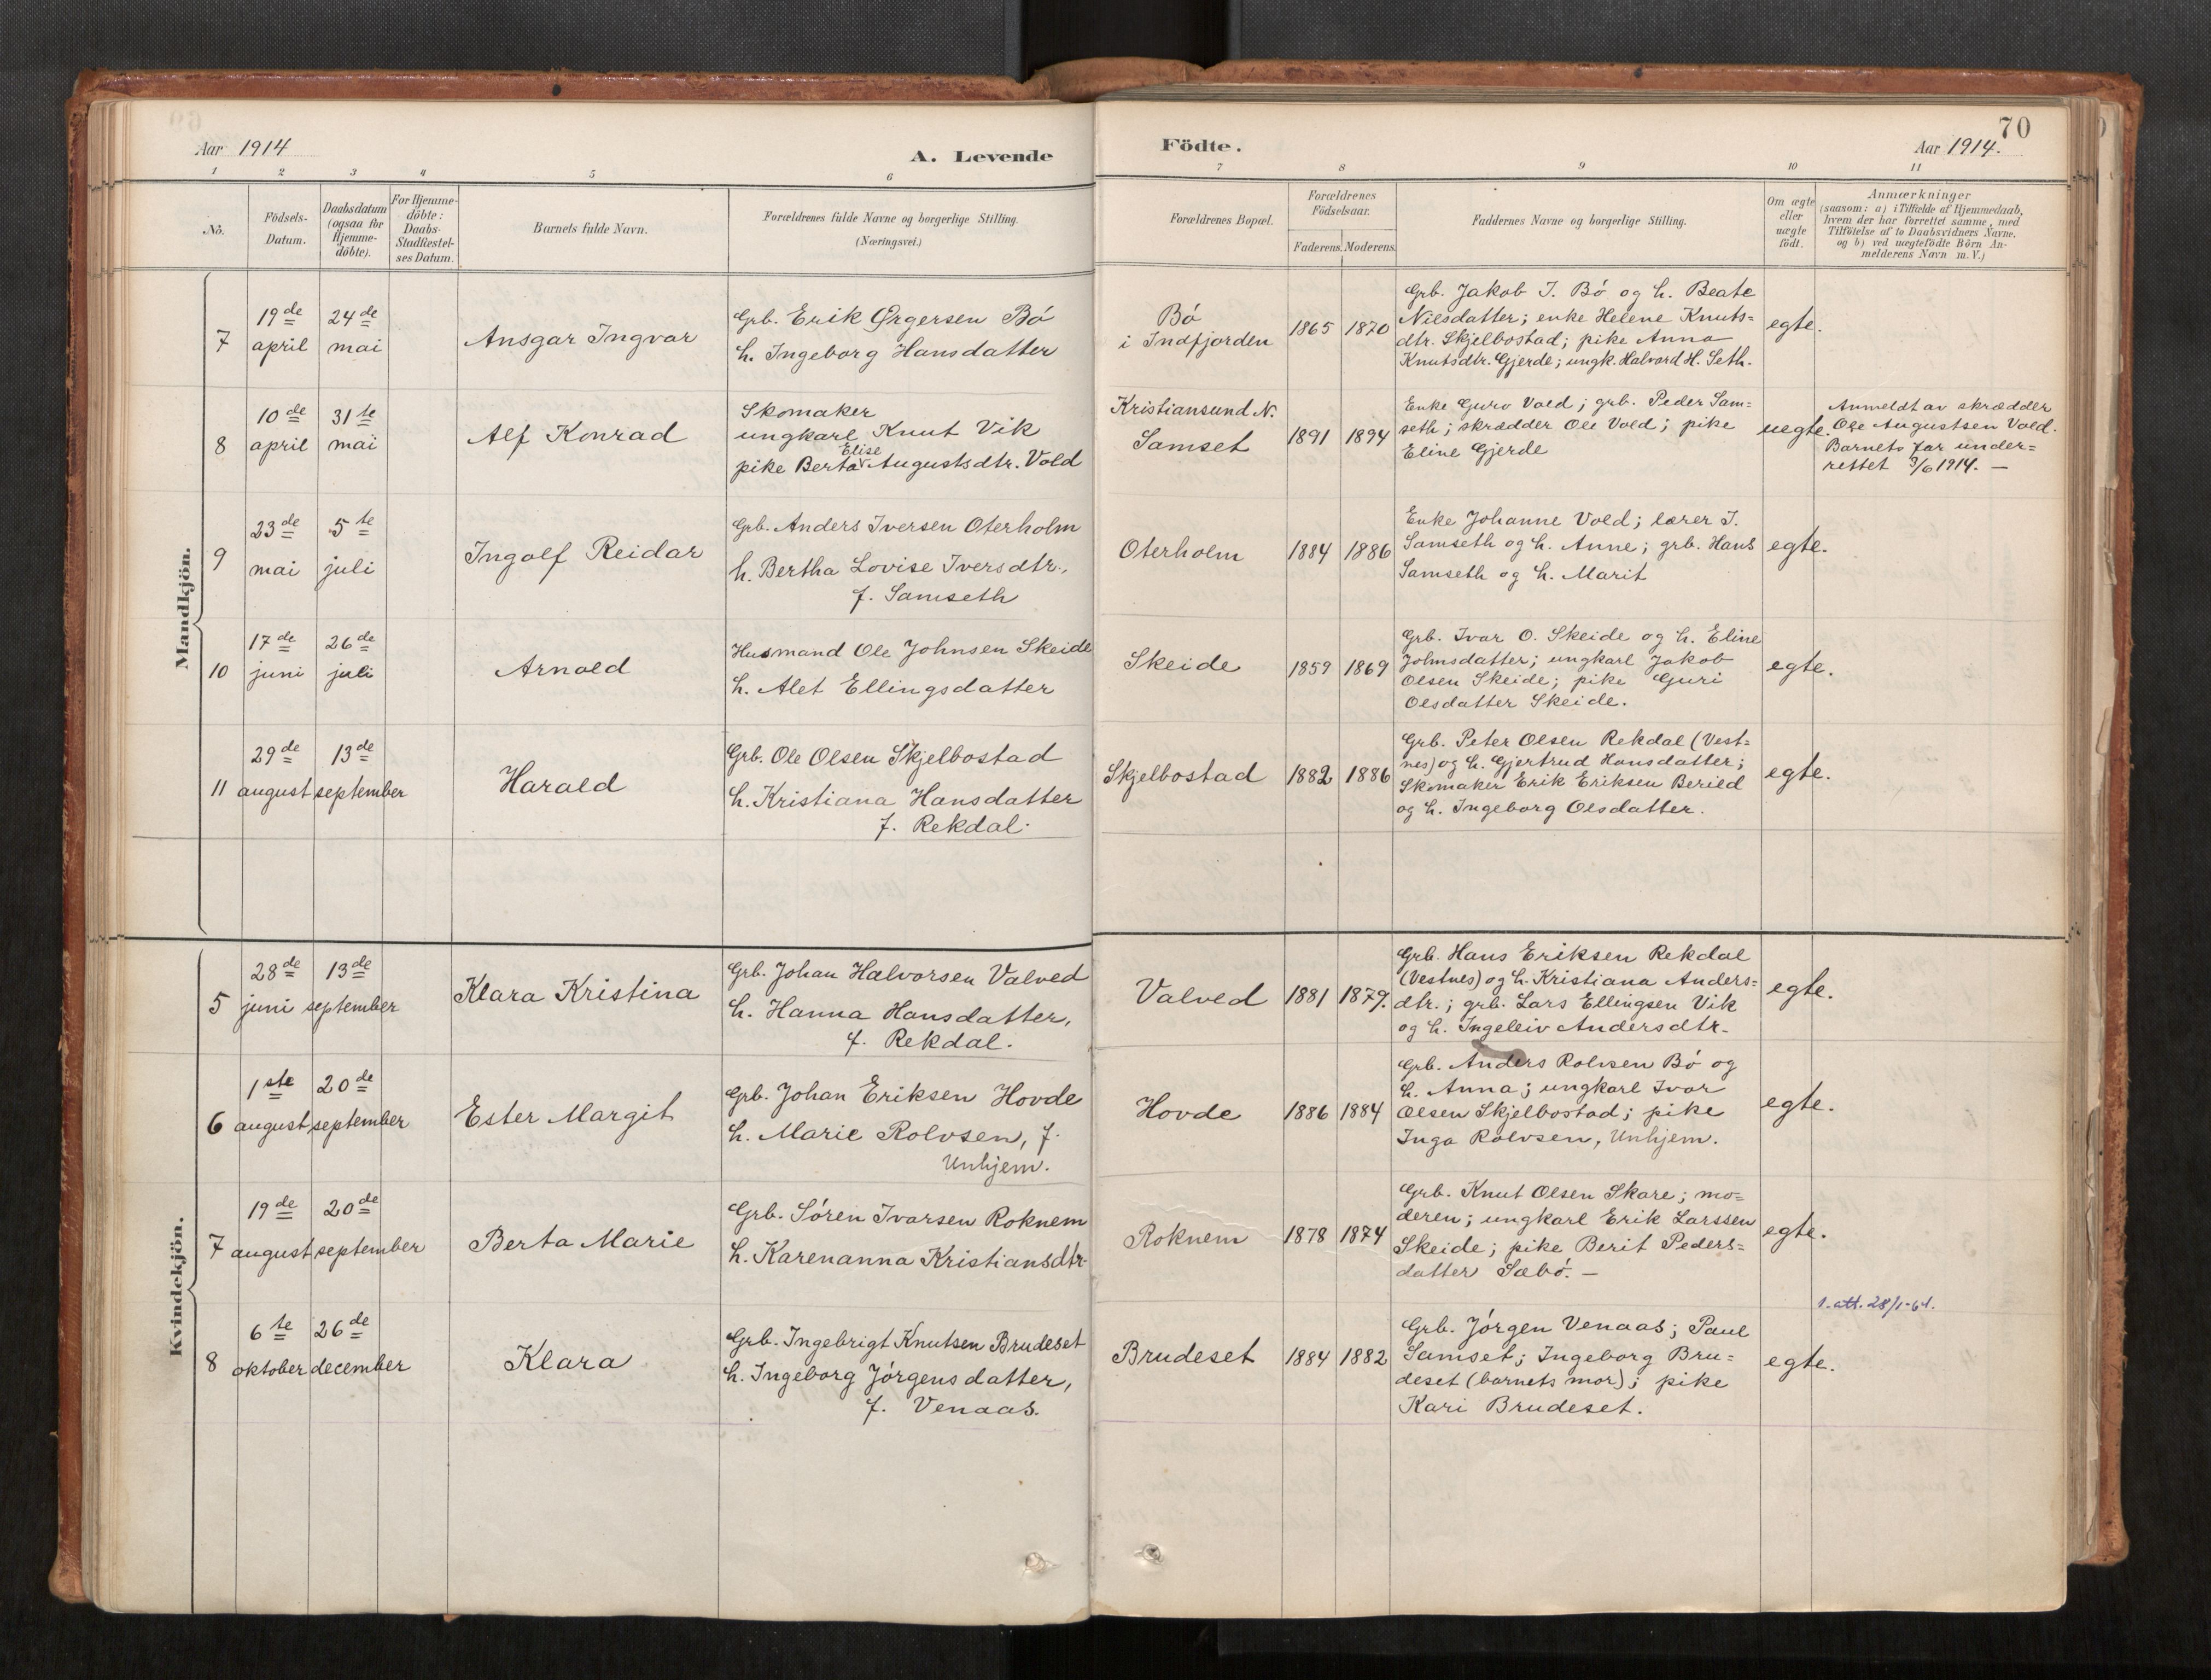 Aar 1914
A. Levende
1 2 3 4 5 6
No.
Födsels-
Datum.
Daabsdatum
(ogsaa for
Hjemme-
döbte).
For Hjemme-
döbte:
Daabs-
Stadfæstel-
ses Datum.
Barnets fulde Navn.
Forældrenes fulde Navne og borgerlige Stilling.
(Næringsvei.)
Födte.
70
Aar 1914.
7 8 9 10 11
Forældrenes Bopæl.
Forældrenes
Födselsaar.
Faderens. Moderens.
Faddernes Navne og borgerlige Stilling.
Om ægte
eller
uægte
födt.
Anmærkninger
(saasom: a) i Tilfælde af Hjemmedaab,
hvem der har forrettet samme, med
Tilföielse af to Daabsvidners Navne.
og b) ved uægtefödte Börn An-
melderens Navn m. V.)
Mandkjön.
7
19de
april
24de
mai
Ansgar Ingvar
Grb. Erik Ørgersen Bó
h. Ingeborg Hansdatter
Bó
i Indfjorden
1865 1870
Grb. Jakob J. Bó og h. Beate
Nilsdatter; enke Helene Knuts-
dtr. Skjelbostad; pike Anna
Knutsdtr. Gjerde; ungk. Halvard H. Seth.
egte.
8
10de
april
31te
mai
Alf Konrad
Skomaker
ungkarl Knut Vik
Elise
pike Berta Augustsdtr. Vold
Kristiansund N.
Samset
1891 1894
Enke Guro Vold; grb. Peder Sam-
seth; skrædder Ole Vold; pike
Eline Gjerde
uegte.
Anmeldt av skrædder
Ole Augustsen Vold.
Barnets far under-
rettet 3/6 1914. —
9
23de
mai
5te
juli
Ingolf Reidar
Grb. Anders Iversen Oterholm
h. Bertha Lovise Iversdtr.,
f. Samseth
Oterholm
1884 1886
Enke Johanne Vold; lærer J.
Samseth og h. Anne; grb. Hans
Samseth og h. Marit
egte.
10
17de
juni
26de
juli
Arnold
Husmand Ole Johnsen Skeide
h. Alet Ellingsdatter
Skeide
1859 1869
Grb. Ivar O. Skeide og h. Eline
Johnsdatter; ungkarl Jakob
Olsen Skeide; pike Guri
Olsdatter Skeide.
egte.
11
29de
august
13de
september
Harald
Grb. Ole Olsen Skjelbostad
h. Kristiana Hansdatter
f. Rekdal.
Skjelbostad
1882 1886
Grb. Peter Olsen Rekdal (Vest-
nes) og h. Gjertrud Hansdatter;
Skomaker Erik Eriksen Berild
og h. Ingeborg Olsdatter.
egte.
Kvindekjön.
5
28de
juni
13de
september
Klara Kristina
Grb. Johan Halvorsen Valved
h. Hanna Hansdatter,
f. Rekdal.
Valved
1881 1879.
Grb. Hans Eriksen Rekdal
(Vestnes) og h. Kristiana Anders-
dtr.; grb. Lars Ellingsen Vik
og h. Ingeleiv Andersdtr.
egte.
6
1ste
august
20de
september
Ester Margit
Grb. Johan Eriksen Hovde
h. Marie Rolvsen, f.
Unhjem.
Hovde
1886 1884
Grb. Anders Rolvsen Bó og
h. Anna; ungkarl Ivar
Olsen Skjelbostad; pike
Inga Rolvsen, Unhjem.
egte.
7
19de
august
20de
september
Berta Marie
Grb. Sóren Ivarsen Roknem
h. Karenanna Kristiansdtr.
Roknem
1878 1874
Grb. Knut Olsen Skare; mo-
deren; ungkarl Erik Larssen
Skeide; pike Berit Peders-
datter Sæbó. —
egte.
8
6te
oktober
26de
december
Klara
Grb. Ingebrigt Knutsen Brudeset
h. Ingeborg Jórgensdatter,
f. Venaas.
Brudeset
1884 1882
Grb. Jórgen Venaas; Paul
Samset; Ingeborg Bru-
deset (barnets mor); pike
Kari Brudeset.
egte.
1. att. 28/1-61.